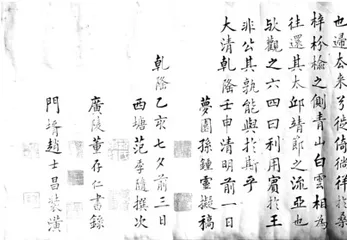 也邇本来兮徙倚徜徉於桑
梓枌榆之側青山白雲相為
往還其太邱靖節之流亞也
歟觀之六四曰利用賓於王
非公其孰能與於斯乎
大清乾隆壬申清明前一日
夢園孫鍾靈擬稿
乾隆乙亥七夕前三日
西塘范季隨撰次
廣陵董存仁書錄
門婿趙士昌裝潢